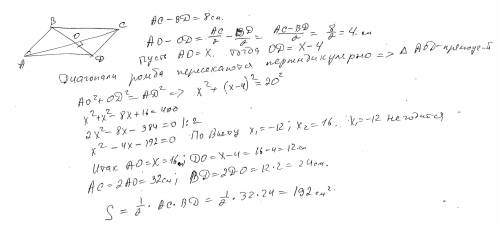 B
C
O
A
D
AC-BD=8см.
AO-OD=AC/2-BD/2=(AC-BD)/2=8/2=4 см
Пусть AO=X. тогда OD=X-4
Диагонали ромба пересекаются перпендикулярно => Δ AOD-прямоуг.
AO²+OD²=AD² => x²+(x-4)²=20²
x²+x²-8x+16=400
2x²-8x-384=0 |:2
x²-4x-192=0 По Виету x₁=-12; x₂=16. x₁=-12 не годится
Итак AO=X=16см; DO=X-4=16-4=12см
AC=2AO=32см; BD=2DO=12·2=24см.
S=1/2·AC·BD=1/2·32·24=192см².